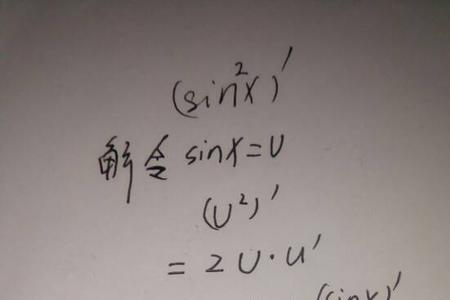 (sin²x)'
解令 sinx=U
(U²)'
= 2U·U'
(sinx)'